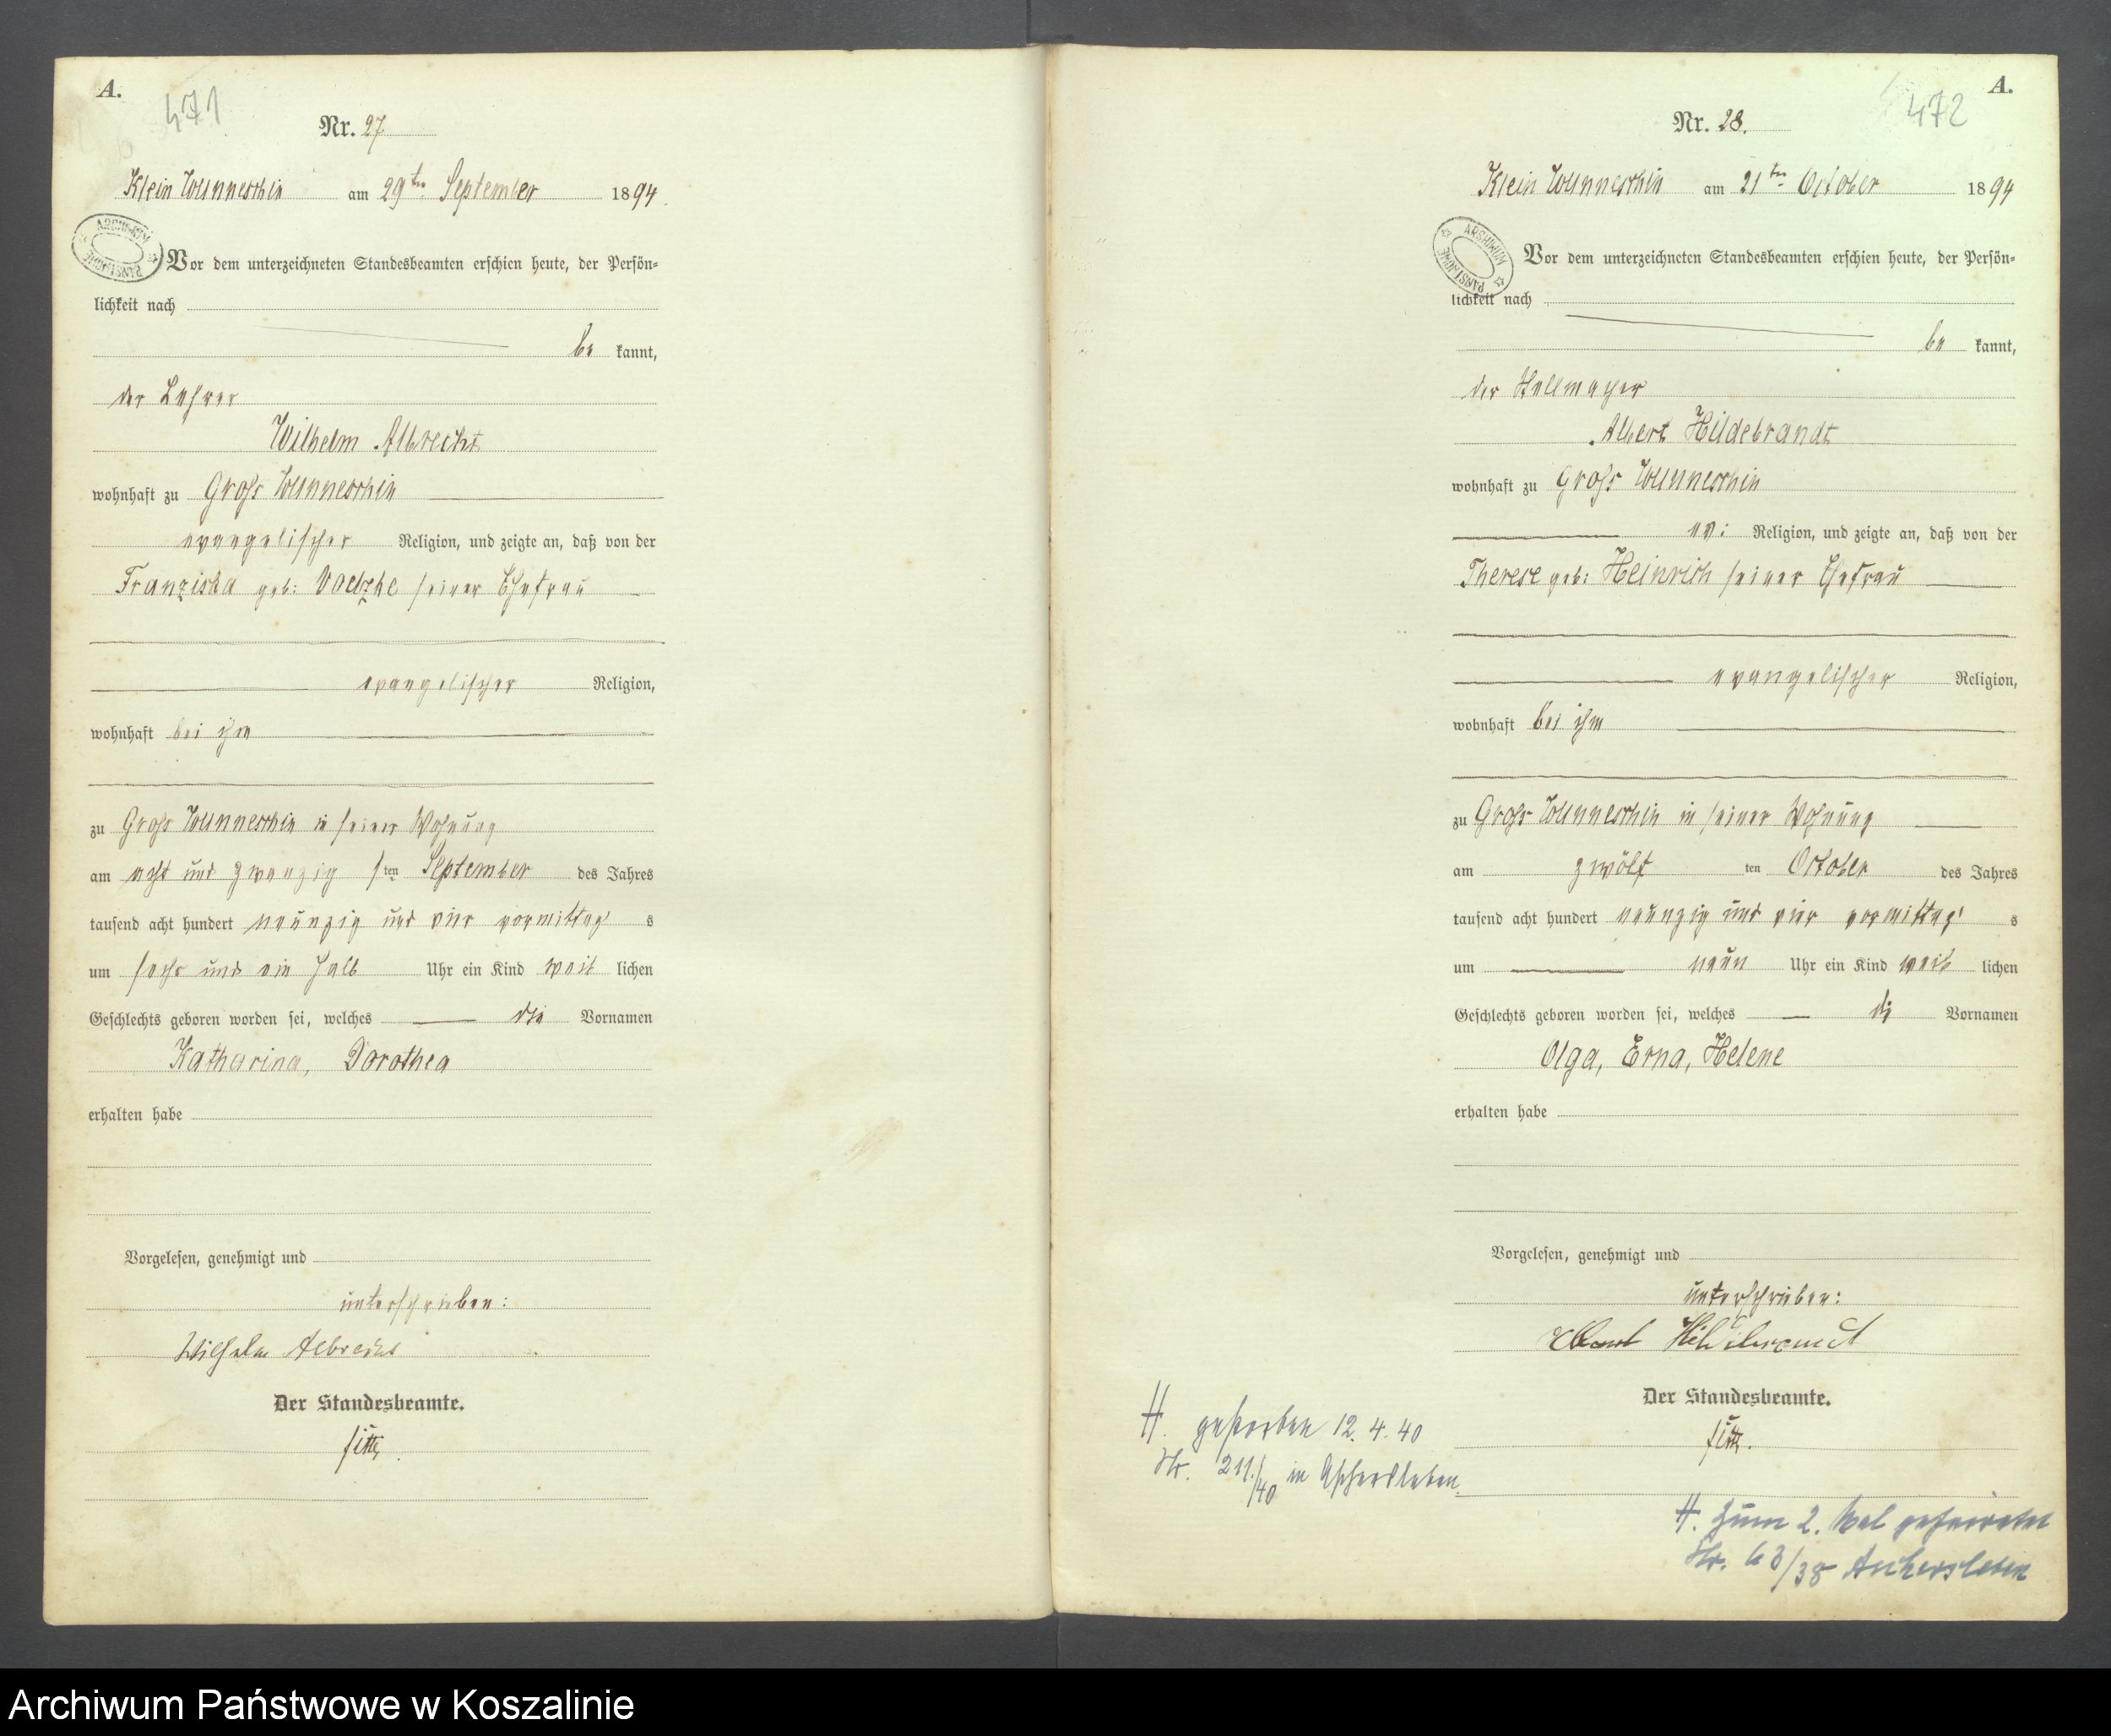 A.
471
Nr. 27
Klein Wunneschin am 29ten September 1894.
ARCHIWUM PAŃSTWOWE
Vor dem unterzeichneten Standesbeamten erschien heute, der Persön=
lichkeit nach
be kannt,
der Lehrer
Wilhelm Albrecht
wohnhaft zu Groß Wunneschin
evangelischer Religion, und zeigte an, daß von der
Franziska geb: seiner Ehefrau
evangelischer Religion,
wohnhaft bei ihm
zu Groß Wunneschin in seiner Wohnung
am acht und zwanzig sten September des Jahres
tausend acht hundert neunzig und vier vormittag s
um sechs und ein halb Uhr ein Kind weib lichen
Geschlechts geboren worden sei, welches die Vornamen
Katharina, Dorothea
erhalten habe
Vorgelesen, genehmigt und
unterschrieben:
Wilhelm Albrecht
Der Standesbeamte.
A.
472
Nr. 28.
Klein Wunneschin am 21ten October 1894
ARCHIWUM PAŃSTWOWE
Vor dem unterzeichneten Standesbeamten erschien heute, der Persön=
lichkeit nach
be kannt,
der
Albert Hildebrandt
wohnhaft zu Groß Wunneschin
ev: Religion, und zeigte an, daß von der
Therese geb: Heinrich seiner Ehefrau
evangelischer Religion,
wohnhaft bei ihm
zu Groß Wunneschin in seiner Wohnung
am zwölf ten October des Jahres
tausend acht hundert neunzig und vier vormittag s
um neun Uhr ein Kind weib lichen
Geschlechts geboren worden sei, welches die Vornamen
Olga, Erna, Helene
erhalten habe
Vorgelesen, genehmigt und
unterschrieben:
Albert Hildebrandt
Der Standesbeamte.
H. gestorben 12.4.40
Nr. 211/40 in Aschersleben.
H. zum 2. Mal geheiratet
Nr. 63/38 Aschersleben
Archiwum Państwowe w Koszalinie